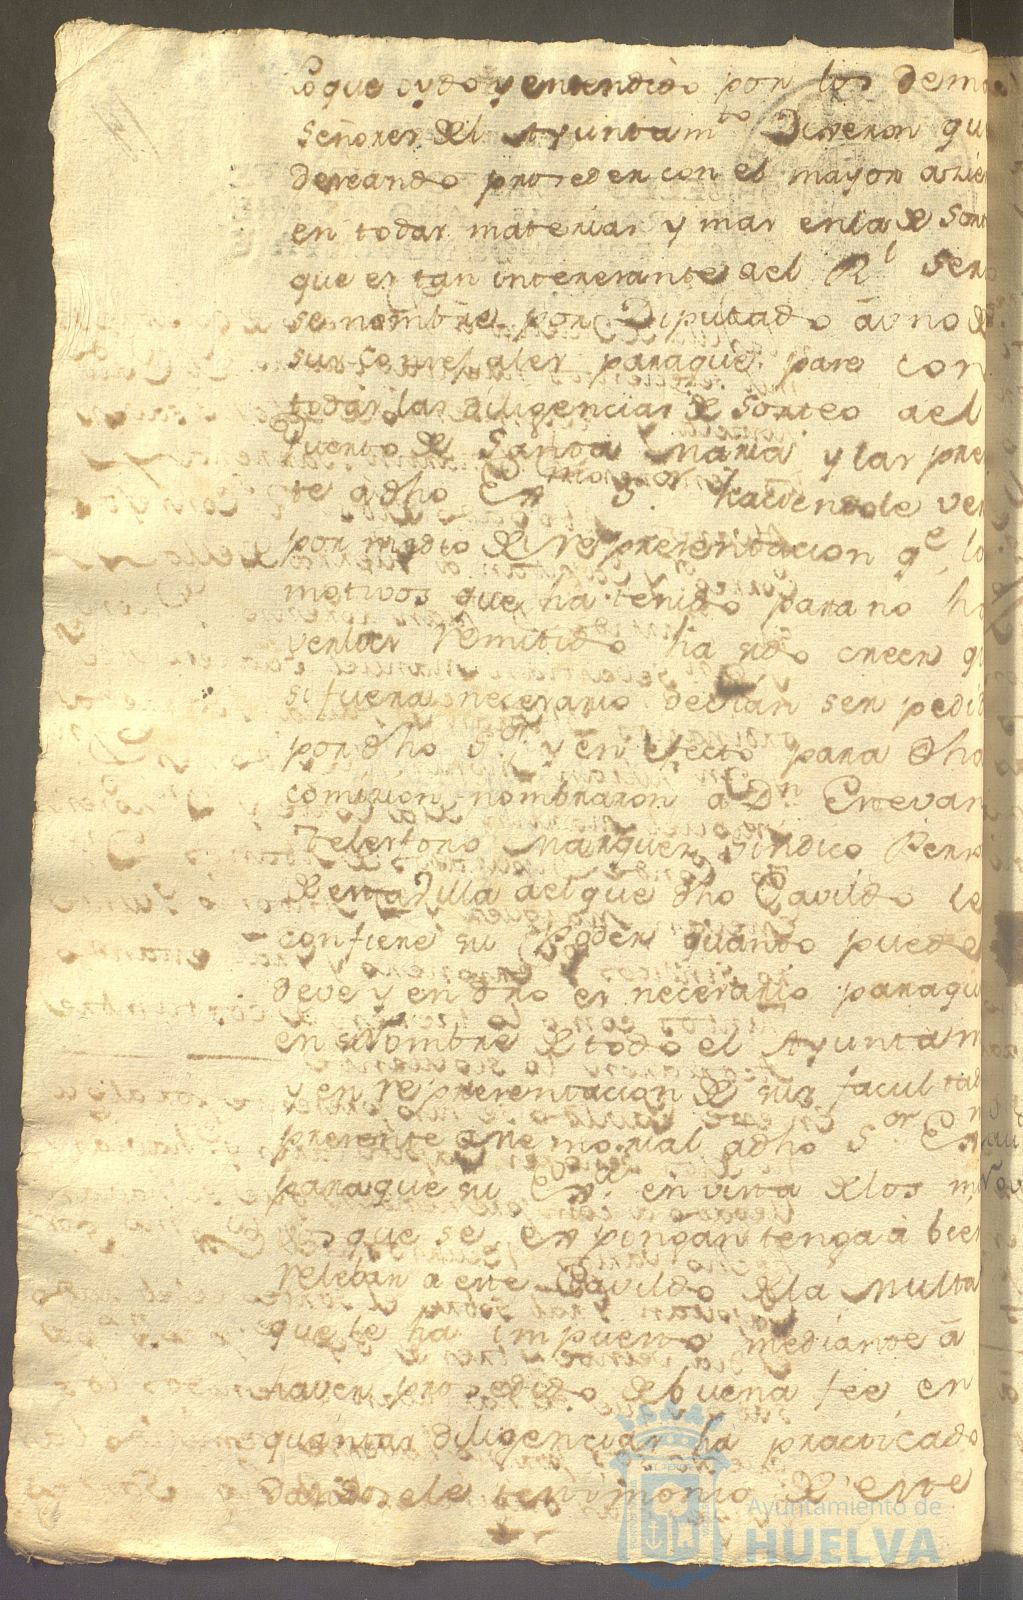 Lo que oydo y entendido por los dema
señores del Ayuntamto Dixeron qu
deseando proseder con el mayor asie
en todas materias y mas en la de Sort
que es tan interesante al Rl Serv
se nombre por Diputado á uno de
sus Conzejales para que pase con
todas las diligencias de Sorteo al
Puerto de Santa Maria y las pre
te a dho Exmo Sor haciendole ver
por medio de representacion qe lo
motivos que ha tenido para no ha
verlas remitido ha sido creer qu
si fuera necesario devian ser pedid
por dho Sor y en efecto para dha
comision nombraron a Dn Estevan
Telesforo Marquez Sindico Perso
de esta Villa al que dho Cavildo le
confiere su Poder quanto puede
deve y en dro es necesario para qu
en su Nombre de todo el Ayuntam
y en representacion de sus facultad
presente este memorial a dho Sor Ex
para que su Exa en vista de los m
que se expongan tenga á bien
relevar a este Cavildo de la multa
que se ha impuesto mediante á
haver prosedido de buena fee en
quantas diligencias ha practicado
dandosele testimonio de este
Ayuntamiento de
HUELVA